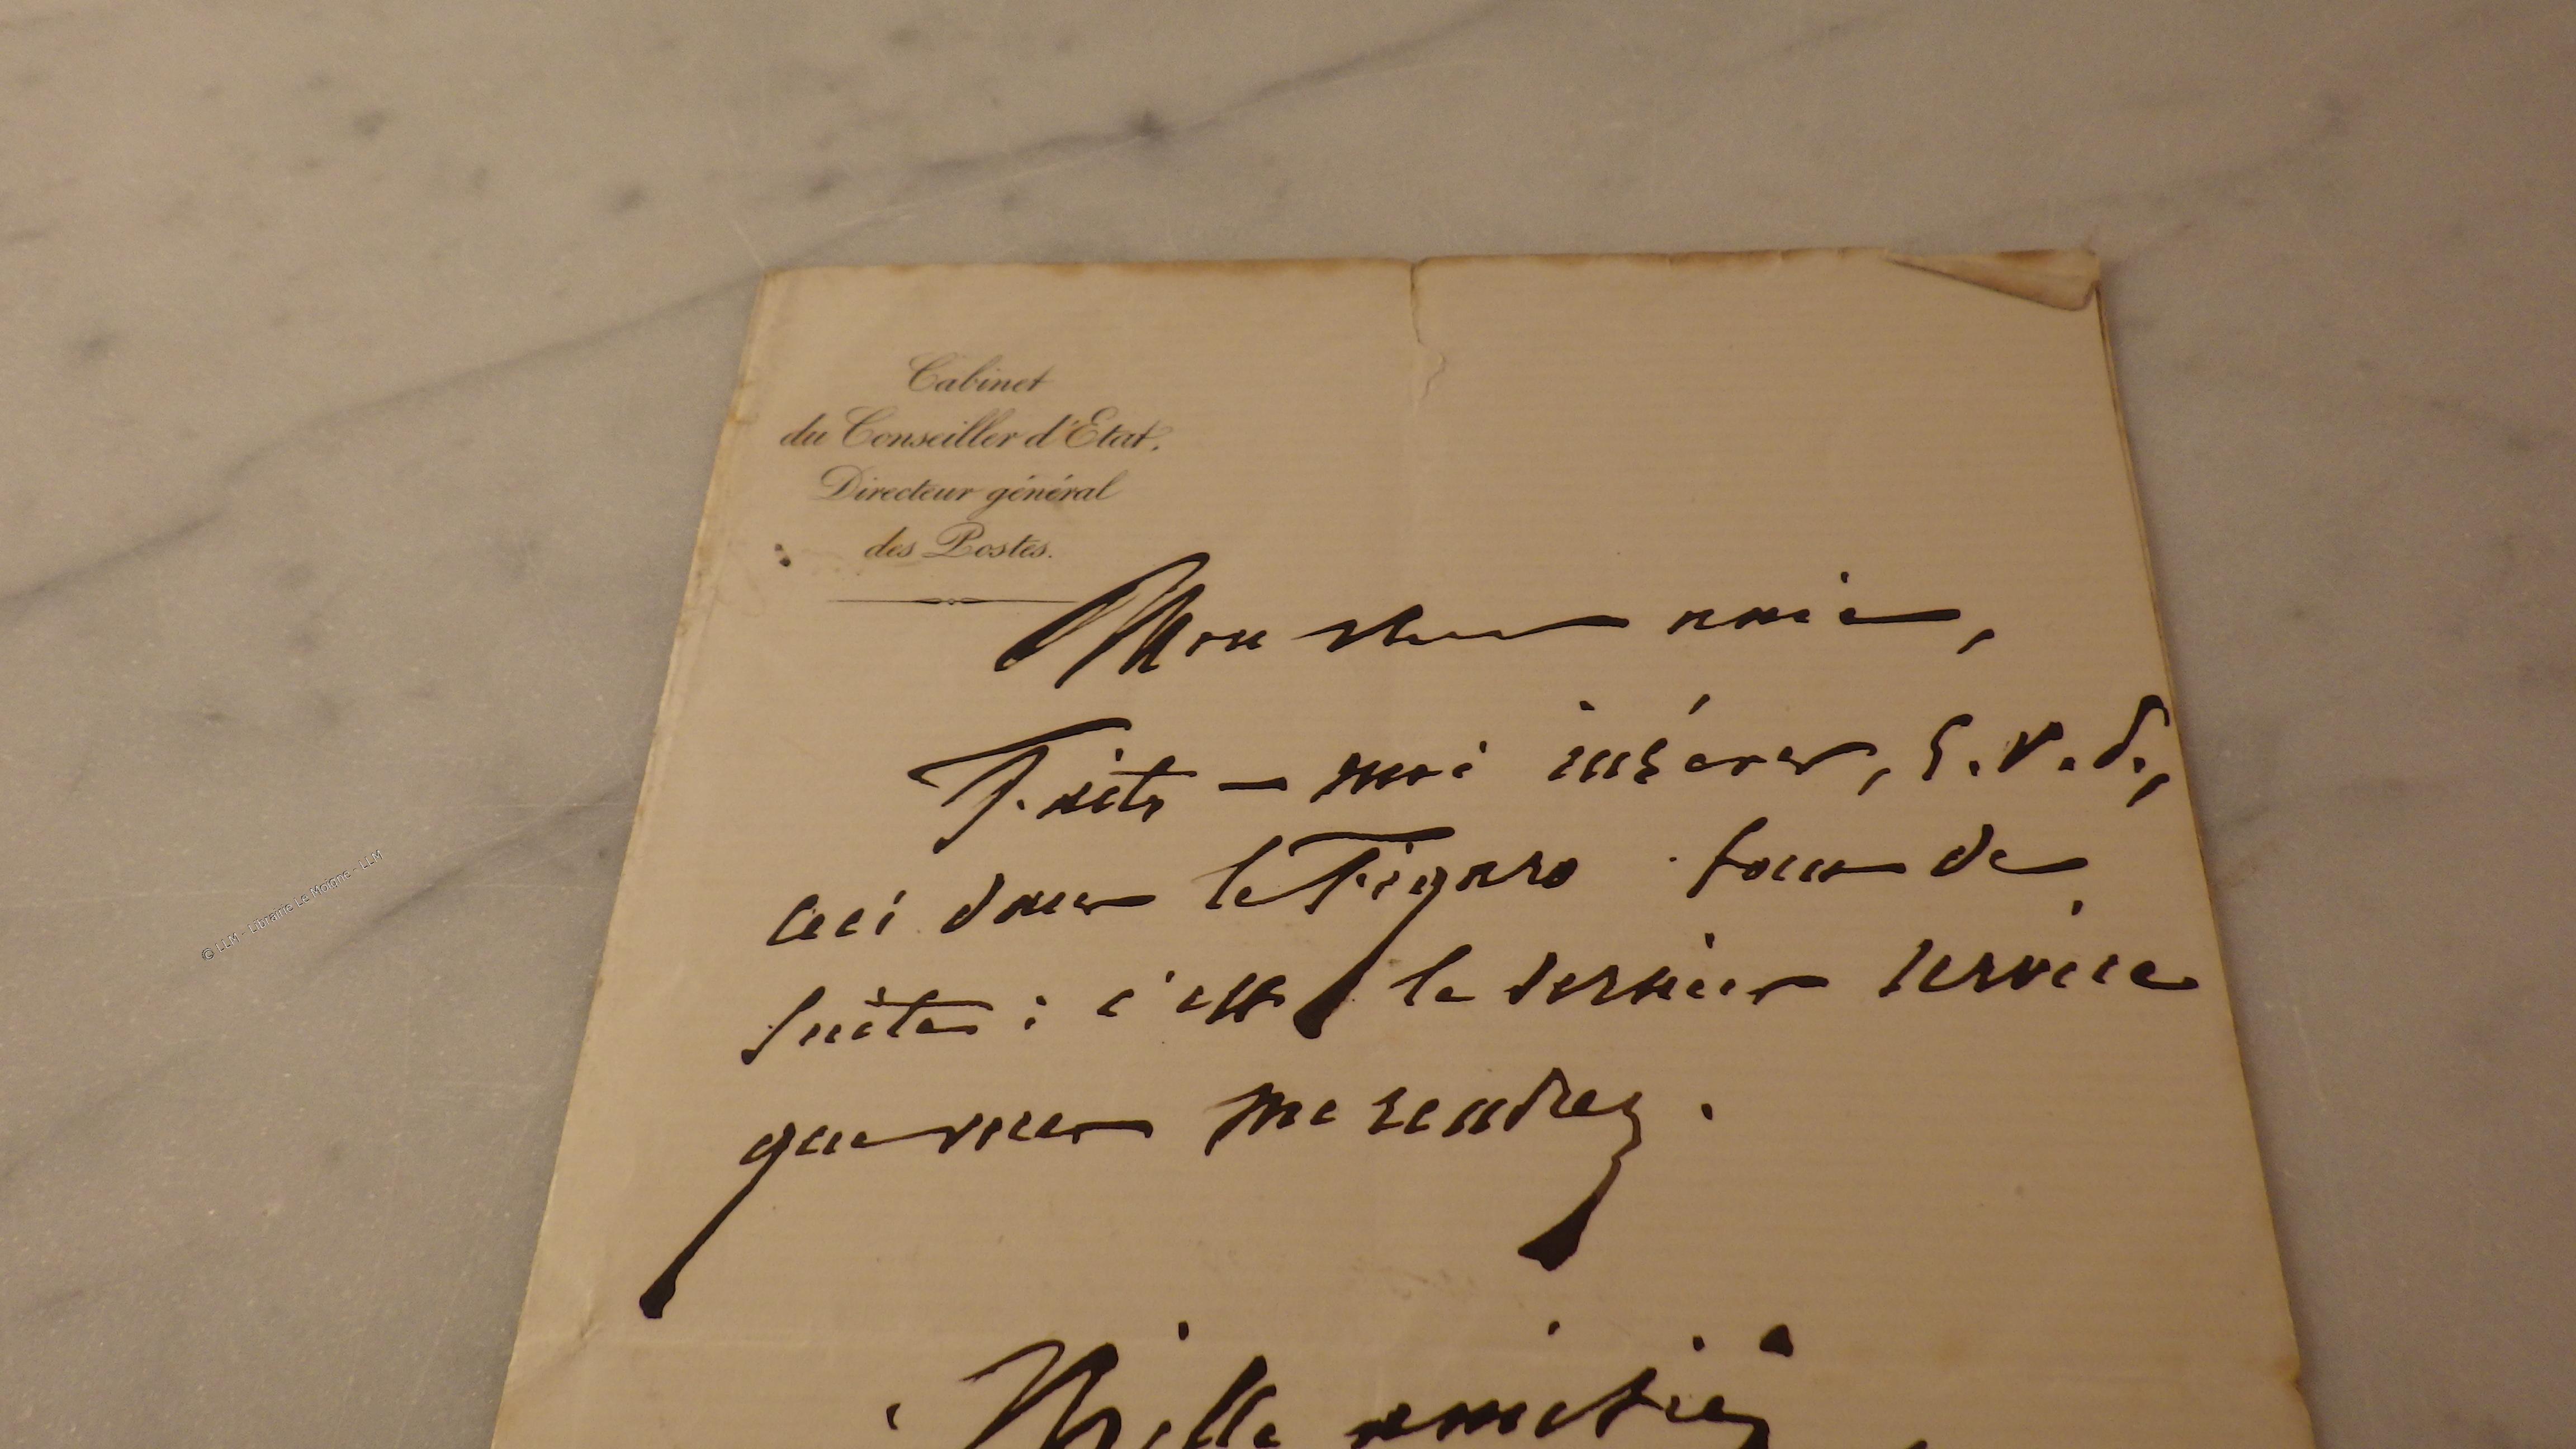 Cabinet
du Conseiller d'Etat.
Directeur général
des Postes.
Mon cher ami,
Faites-moi insérer, S.V.P.,
ceci dans le Figaro tout de
suite : c'est le dernier service
que vous me rendrez.
Mille amitiés
© LLM - Librairie Le Moigne - LLM